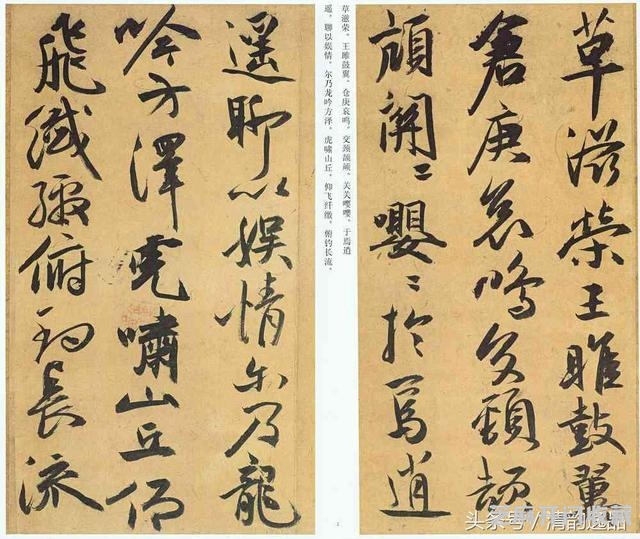 草滋榮王雎鼓翼
倉庚哀鳴交頸頡
頏關〻嚶〻於焉逍
草滋荣。王雎鼓翼，仓庚哀鸣，交颈颉颃，关关嘤嘤，于焉逍
遥，聊以娱情。尔乃龙吟方泽，虎啸山丘，仰飞纤缴，俯钓长流。
遥聊以娛情尔乃龍
吟方澤虎嘯山丘仰
飛纖繳俯釣長流
头条号/清韵逸品